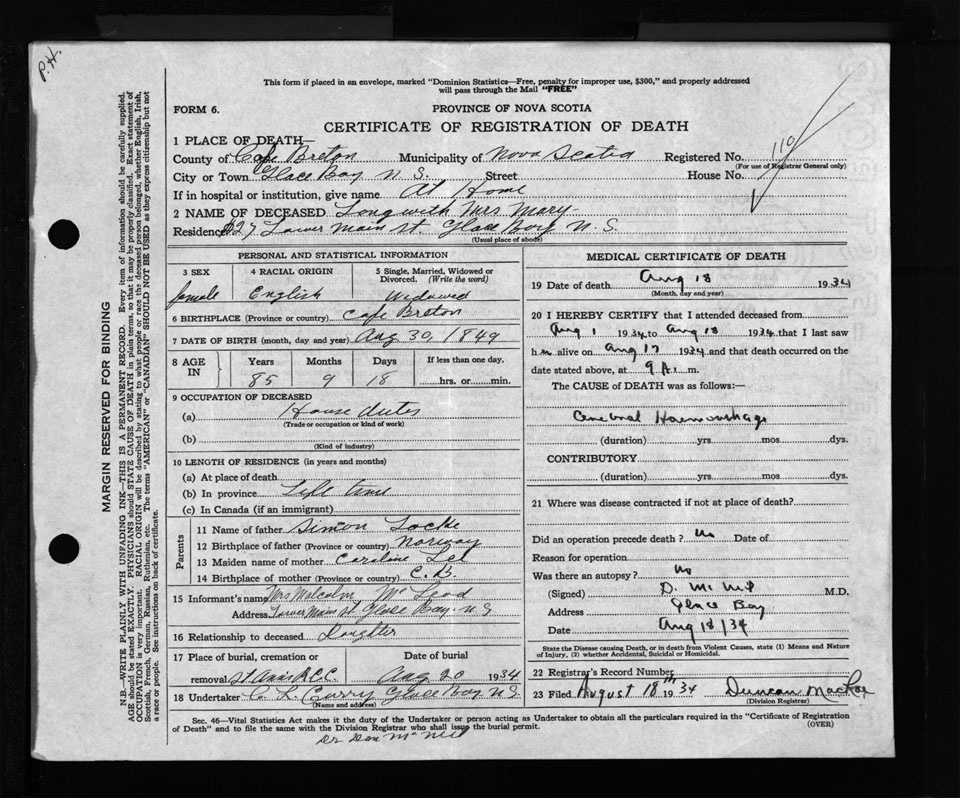 P.H.
This form if placed in an envelope, marked "Dominion Statistics—Free, penalty for improper use, $300," and properly addressed
will pass through the Mail "FREE"
FORM 6.
PROVINCE OF NOVA SCOTIA
CERTIFICATE OF REGISTRATION OF DEATH
1 PLACE OF DEATH—
County of Cape Breton Municipality of Nova Scotia Registered No. 110
(For use of Registrar General only)
City or Town Glace Bay N.S. Street House No.
If in hospital or institution, give name At Home
2 NAME OF DECEASED Longwith Mrs Mary
Residence #27 Lower Main St. Glace Bay N.S.
(Usual place of abode)
MARGIN RESERVED FOR BINDING
N.B.—WRITE PLAINLY WITH UNFADING INK—THIS IS A PERMANENT RECORD. Every item of information should be carefully supplied.
AGE should be stated EXACTLY. PHYSICIANS should STATE CAUSE OF DEATH in plain terms, so that it may be properly classified. Exact statement of
OCCUPATION is very important. RACIAL ORIGIN will be described by stating to what people or race the deceased person belonged, whether English, Irish,
Scottish, French, German, Russian, Ruthenian, etc. The terms "AMERICAN" or "CANADIAN" SHOULD NOT BE USED as they express citizenship but not
a race or people. See instructions on back of certificate.
PERSONAL AND STATISTICAL INFORMATION
3 SEX 4 RACIAL ORIGIN 5 Single, Married, Widowed or
Divorced. (Write the word)
female English Widowed
6 BIRTHPLACE (Province or country) Cape Breton
7 DATE OF BIRTH (month, day and year) Aug 30, 1849
8 AGE IN Years Months Days If less than one day,
85 9 18 hrs. or min.
9 OCCUPATION OF DECEASED
(a) House duties
(Trade or occupation or kind of work)
(b)
(Kind of industry)
10 LENGTH OF RESIDENCE (in years and months)
(a) At place of death
(b) In province Life time
(c) In Canada (if an immigrant)
Parents
11 Name of father Simon Locke
12 Birthplace of father (Province or country) Norway
13 Maiden name of mother Caroline
14 Birthplace of mother (Province or country) C.B.
15 Informant's name Mrs Malcolm McLeod
Address Lower Main St. Glace Bay N S
16 Relationship to deceased Daughter
17 Place of burial, cremation or Date of burial
removal St Anns R.C.C. Aug 20 1934
18 Undertaker C. K. Curry Glace Bay N S
(Name and address)
MEDICAL CERTIFICATE OF DEATH
19 Date of death Aug 18 1934
(Month, day and year)
20 I HEREBY CERTIFY that I attended deceased from
Aug 1 1934 to Aug 18 1934 that I last saw
h alive on Aug 17 1934 and that death occurred on the
date stated above, at 9 A. m.
The CAUSE OF DEATH was as follows:—
Cerebral Haemorrhage
(duration) yrs mos dys.
CONTRIBUTORY
(duration) yrs mos dys.
21 Where was disease contracted if not at place of death?
Did an operation precede death? No Date of
Reason for operation
Was there an autopsy? No
(Signed) D. McNeil M.D.
Address Glace Bay
Date Aug 18/34
State the Disease causing Death, or in death from Violent Causes, state (1) Means and Nature
of Injury, (2) whether Accidental, Suicidal or Homicidal.
22 Registrar's Record Number
23 Filed August 18th 1934 Duncan
(Division Registrar)
Sec. 46—Vital Statistics Act makes it the duty of the Undertaker or person acting as Undertaker to obtain all the particulars required in the "Certificate of Registration
of Death" and to file the same with the Division Registrar who shall issue the burial permit. (OVER)
Dr Dan McNeil